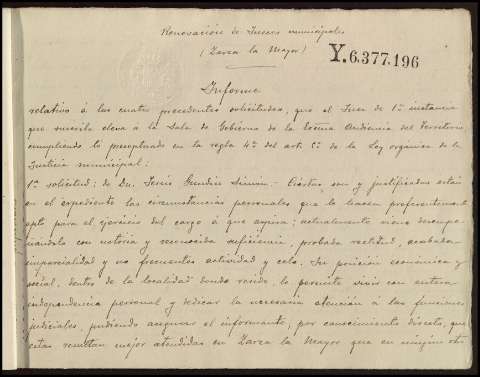 Renovación de Jueces municipales
(Zarza la Mayor)
Y.6.377.196
Informe
relativo á las cuatro precedentes solicitudes, que el Juez de 1ª instancia
que suscribe eleva á la Sala de Gobierno de la Excma Audiencia del Territorio,
cumpliendo lo preceptuado en la regla 4ª del art. 5º de la Ley orgánica de la
Justicia municipal:
1ª solicitud: de Dn. Jesús Simón - Ciertas son y justificadas están
en el expediente las circunstancias personales que le hacen preferentemente
apto para el ejercicio del cargo á que aspira; actualmente viene desempe-
ñándolo con notoria y reconocida suficiencia, probada rectitud, acabada
imparcialidad y no frecuentes actividad y celo. Su posición económica y
social, dentro de la localidad donde reside, le permite vivir con entera
independencia personal y dedicar la necesaria atención á las funciones
judiciales, pudiendo asegurar el informante, por conocimiento directo, que
estas resultan mejor atendidas en Zarza la Mayor que en ningun otro